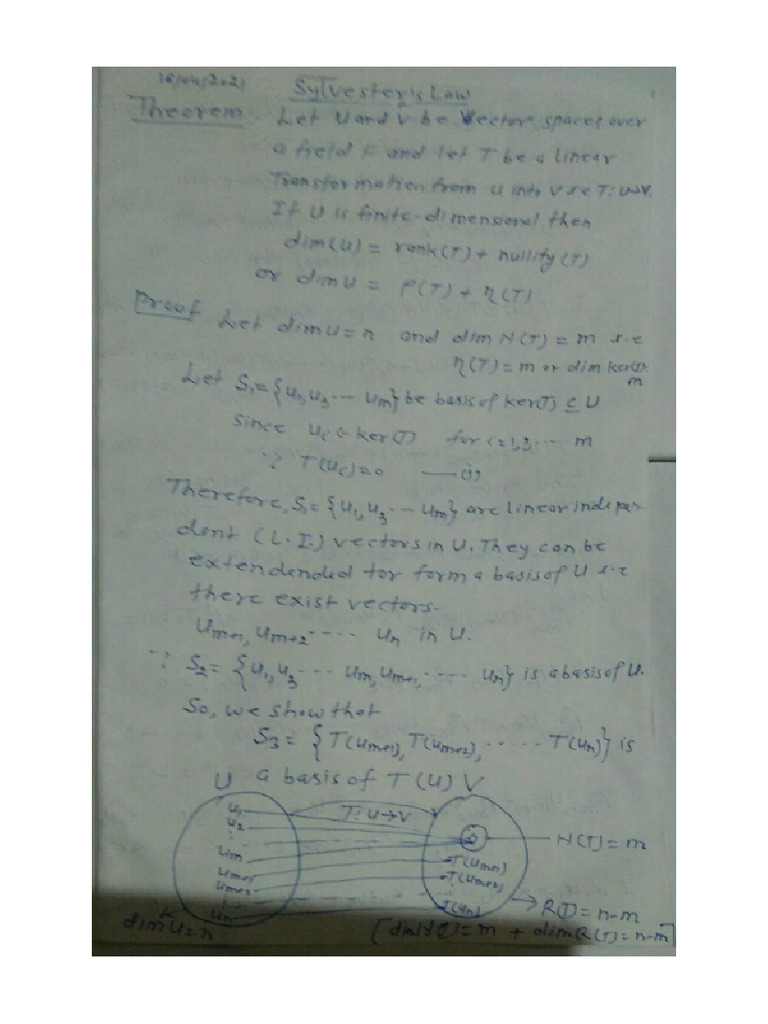 16/04/2021
Sylvester's Law
Theorem:- Let U and V be Vector spaces over
a field F and let T be a linear
Transformation from U into V i.e T: U→V.
If U is finite-dimensional then
dim(U) = rank(T) + nullity(T)
or dim U = ρ(T) + η(T)
Proof Let dim U = n and dim N(T) = m i.e
η(T) = m or dim ker(T)=
m
Let S₁ = {u₁, u₂ ---- um} be basis of ker(T) ⊆ U
since ui ∈ ker(T) for i=1,2,---- m
∵ T(ui) = 0 —— (i)
Therefore, S₁ = {u₁, u₂ --- um} are linear indepen-
dent (L.I.) vectors in U. They can be
extendended for form a basis of U i.e
there exist vectors.
um+1, um+2 ----- un in U.
∵ S₂ = {u₁, u₂ ---- um, um+1, ---- un} is a basis of U.
So, we show that
S₃ = {T(um+1), T(um+2), ------ T(un)} is
a basis of T(U)
U V
T: U→V
u₁
u₂
⋮
um
um+1
um+2
⋮
un
0
T(um+1)
T(um+2)
⋮
T(un)
N(T) = m
→ R(T) = n-m
dim U = n
[dim N(T) = m + dim R(T) = n-m]